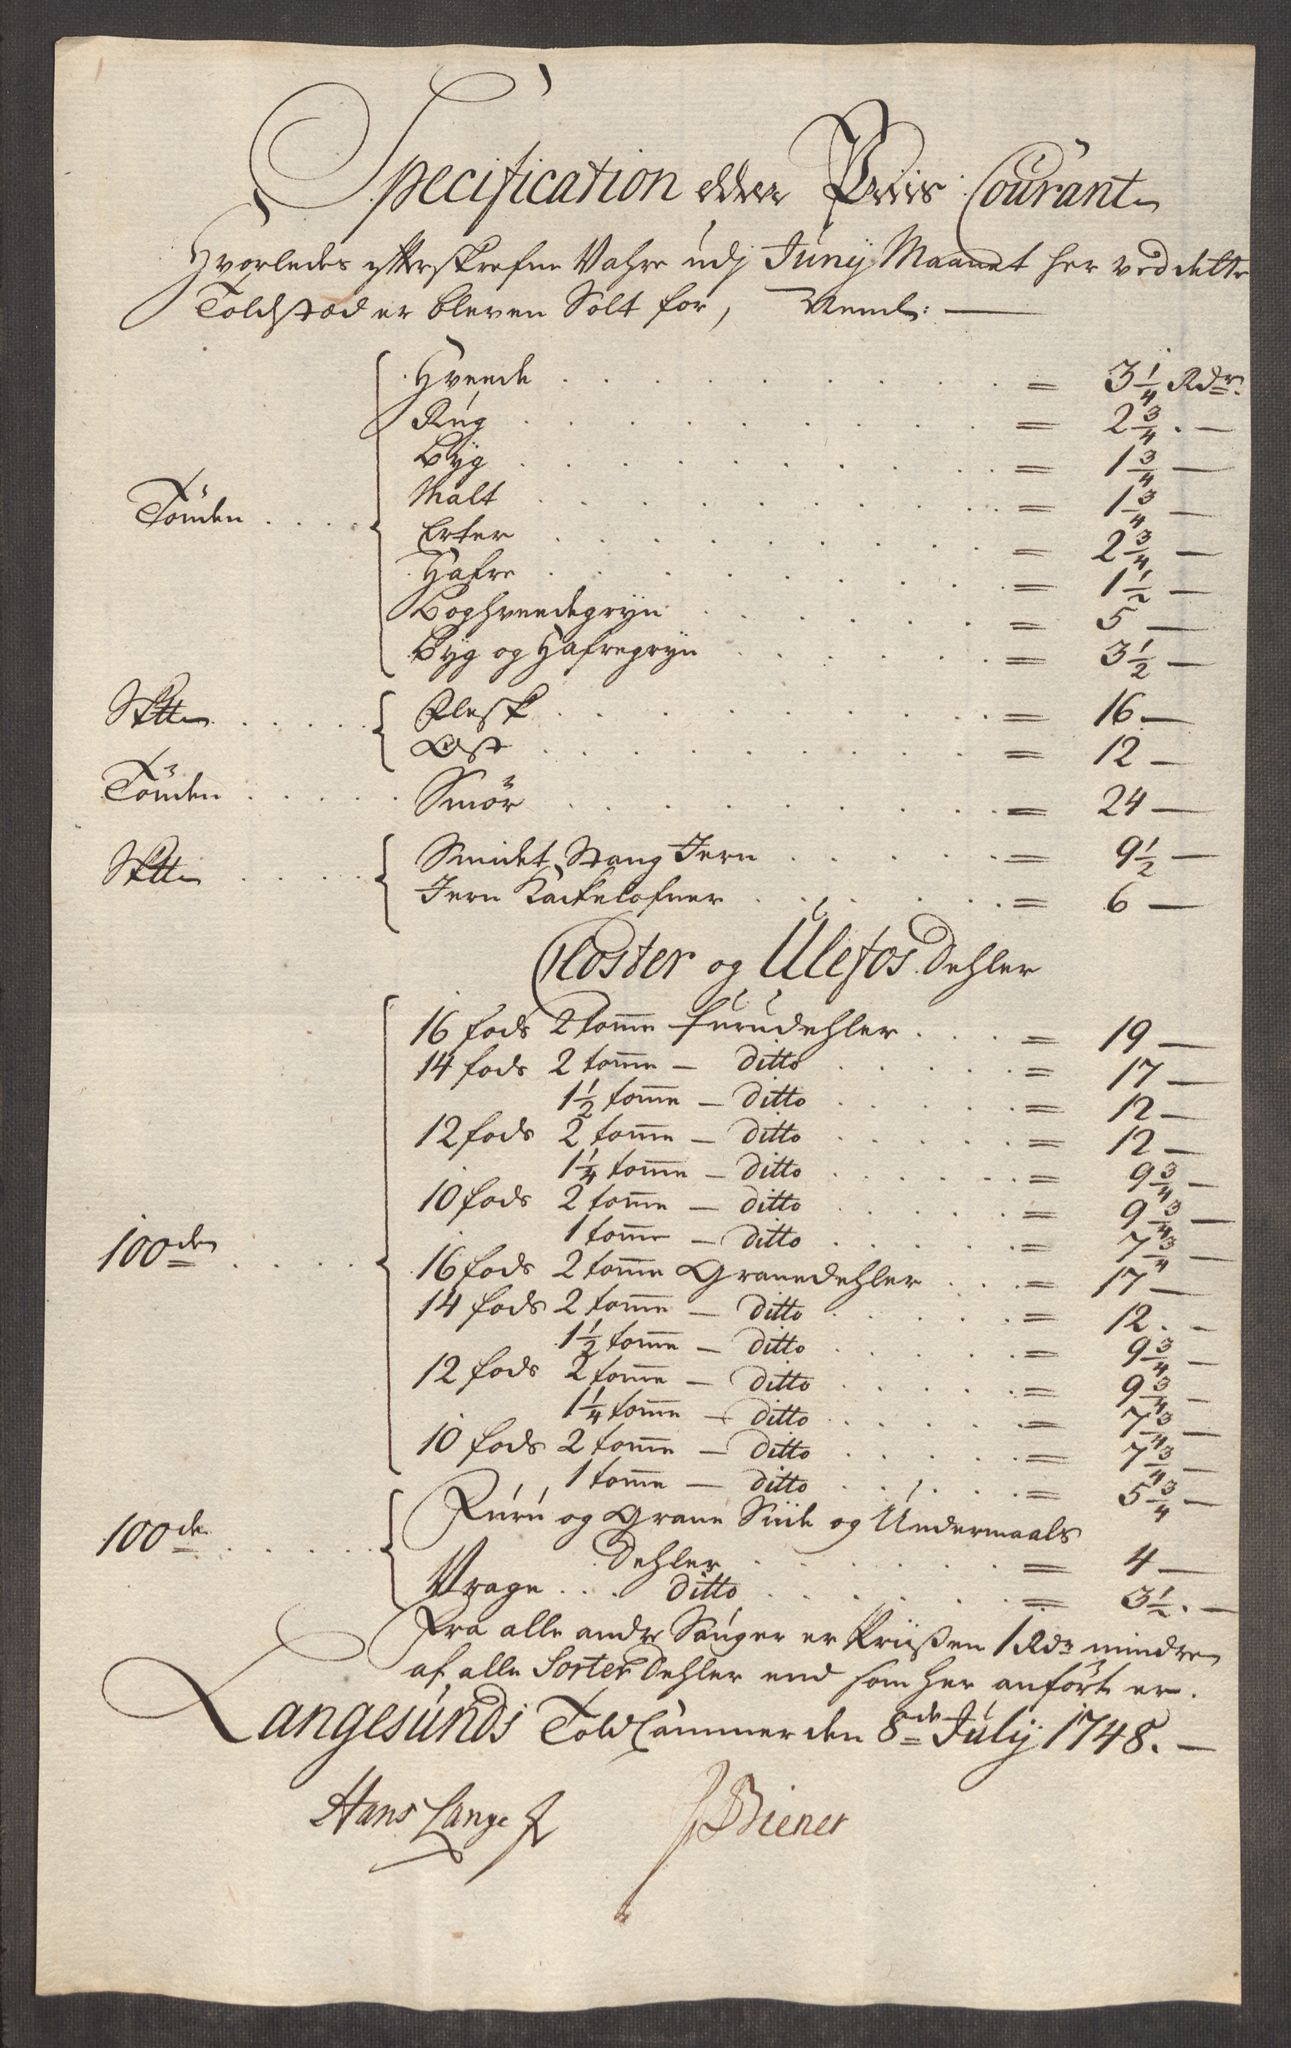 Specification eller Priis Courant
Hvorledes efterskrefne Vahre udj Junij Maanet her ved dette
Toldsted er bleven Solt for, Neml:
Hveede = 3 1/4 Rdr.
Rúg = 2 3/4 . —
Byg = 1 3/4 —
Malt = 1 3/4 —
Tönden Erter = 2 3/4 —
Hafre = 1 1/2 —
Boghveedegryn = 5 —
Byg og Hafregryn = 3 1/2 —
Flesk = 16 —
Ost = 12 —
Tönden Smör = 24 —
Smidet Stang Jern = 9 1/2 —
Jern Kackelofner = 6 —
Closter og Ulefos Dehler
16 fods 2 tomme fúrúdehler = 19 —
14 fods 2 tomme — ditto = 17 —
1 1/2 tomme — ditto = 12 —
12 fods 2 tomme — ditto = 12 —
1 1/4 tomme — ditto = 9 3/4 —
10 fods 2 tomme — ditto = 9 3/4 —
1 tomme — ditto = 7 3/4 —
100de 16 fods 2 tomme Granedehler = 17 —
14 fods 2 tomme — ditto = 12 . —
1 1/2 tomme — ditto = 9 3/4 —
12 fods 2 tomme — ditto = 9 3/4 —
1 1/4 tomme — ditto = 7 3/4 —
10 fods 2 tomme — ditto = 7 3/4 —
1 tomme — ditto = 5 3/4 —
100de Fúrú og Grane Siide og Undermaals
Dehler = 4 —
Vrage ditto = 3 1/2 . —
fra alle andre Sauger er Priißen 1 Rdr mindre
af alle Sorter Dehler end som her anfört er.
Langesúnds Told Cammer den 8de Júlij 1748. —
Hans Lange Biener